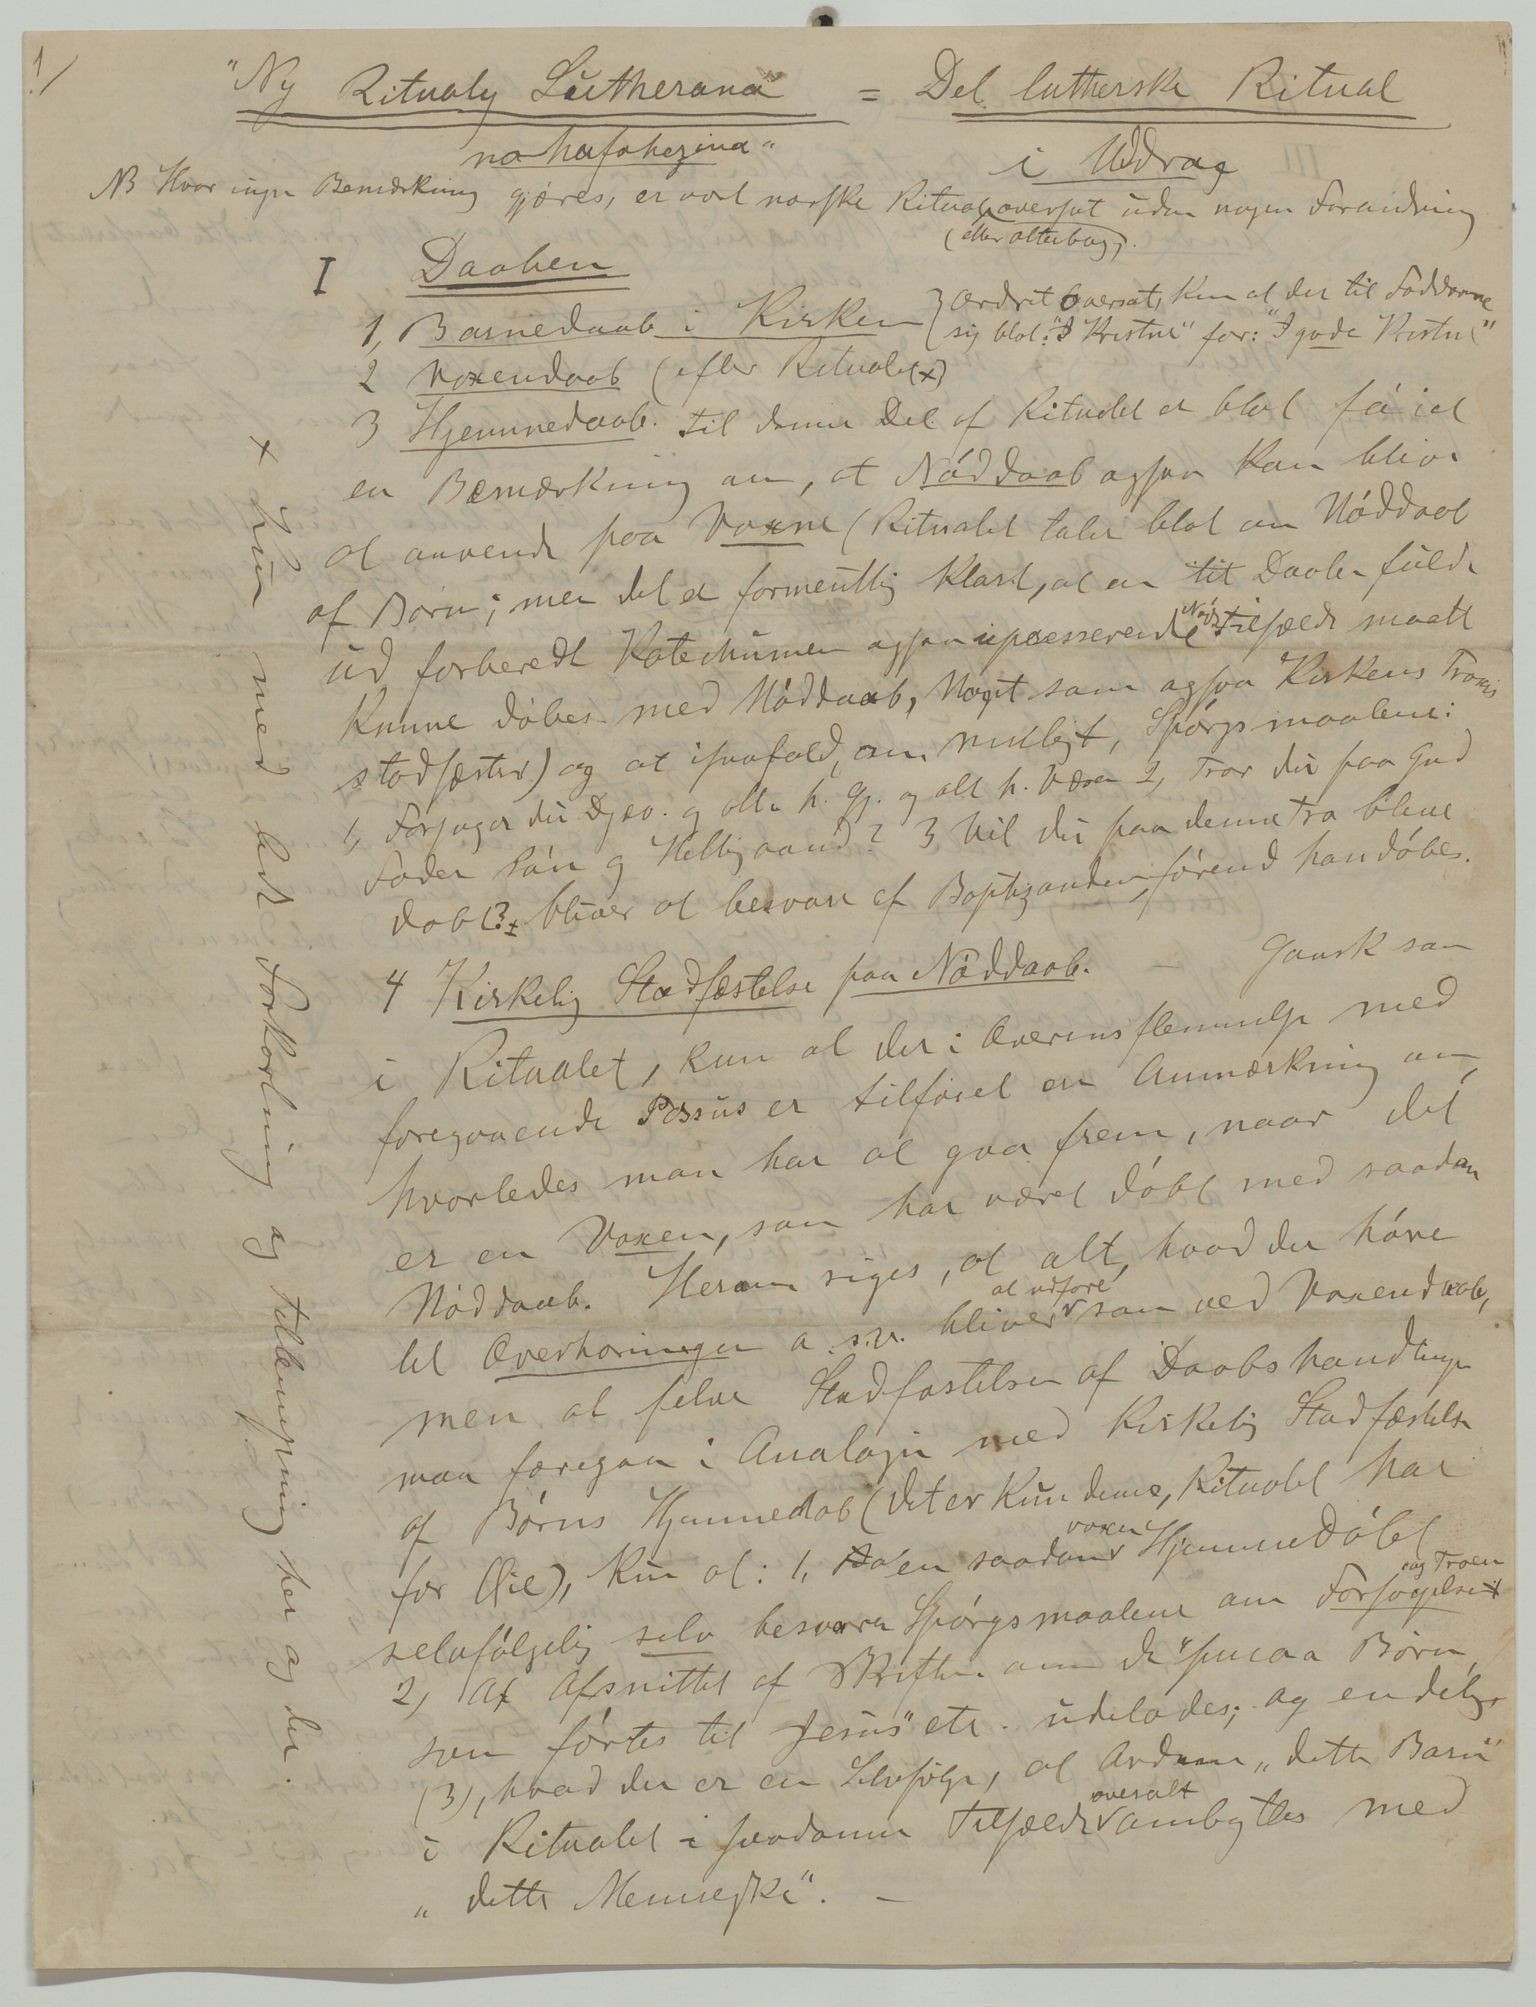 1/
"Ny Ritualy Lutherana" = Det lutherske Ritual
nohafohezina" i Uddrag
NB Hvor ingen Bemærkning gjøres, er vort norske Ritual oversat uden nogen Forandring
(eller alterbog).
I Daaben
1, Barnedaab i Kirken } ordret oversat, kun at der til Fadderne
sig blot: "I Kristne" for: "I gode Kristne"
2 Voxendaab (efter Ritualet x)
3 Hjemmedaab. Til denne Del af Ritualet er blot føiet
en Bemærkning om, at Nøddaab ogsaa kan blive
at anvende paa Voxne (Ritualet taler blot om Nøddaab
af Børn; men det er formentlig klart, at en til Daaben fuldt
ud forberedt Katechumen ogsaa i passerende Nødstilfælde maatte
kunne døbes med Nøddaab, Noget som ogsaa Kirkens Praxis
stadfæster) og at isaafald, om muligt, Spørgsmaalene:
1, Forsager du Djæv. og alle h. Gj. og alt h. Væsen 2, Tror du paa Gud
Fader Søn og Helligaand? 3 Vil du paa denne Tro blive
døbt? bliver at besvare af Baptizanden, førend han døbes.
4 Kirkelig Stadfæstelse paa Nøddaab. – Ganske som
i Ritualet, kun at der i Overensstemmelse med
foregaaende Passus er tilføiet en Anmærkning om,
hvorledes man har at gaa frem, naar det
er en Voxen, som har været døbt med saadan
Nøddaab. Herom siges, at alt, hvad der hører
til Overhøringen o. s. v. bliver at udføre som ved Voxendaab,
men at selve Stadfæstelsen af Daabshandlingen
maa foregaa i Analogi med Kirkelig Stadfæstelse
af Børns Hjemmedaab (det er kun denne, Ritualet har
for Øie), kun at: 1, en saadan voxen Hjemmedøbt
selvfølgelig selv besvarer Spørgsmaalene om Forsagelsen og Troen
2, At Afsnittet af Skriften om de "smaa Børn,
som førtes til Jesus" etc. udelades; og endelig
(3), hvad der er en Selvfølge, at Ordene "dette Barn"
i Ritualet i saadanne Tilfælde overalt ombyttes med
"dette Menneske". –
x Kun med lidt Forkortning og Tillempning her og der.